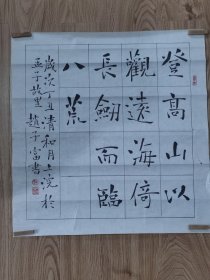 登高山以
觀遠海倚
長劍而臨
八荒
歲次丁丑清和月上浣於
孟子故里趙子富書